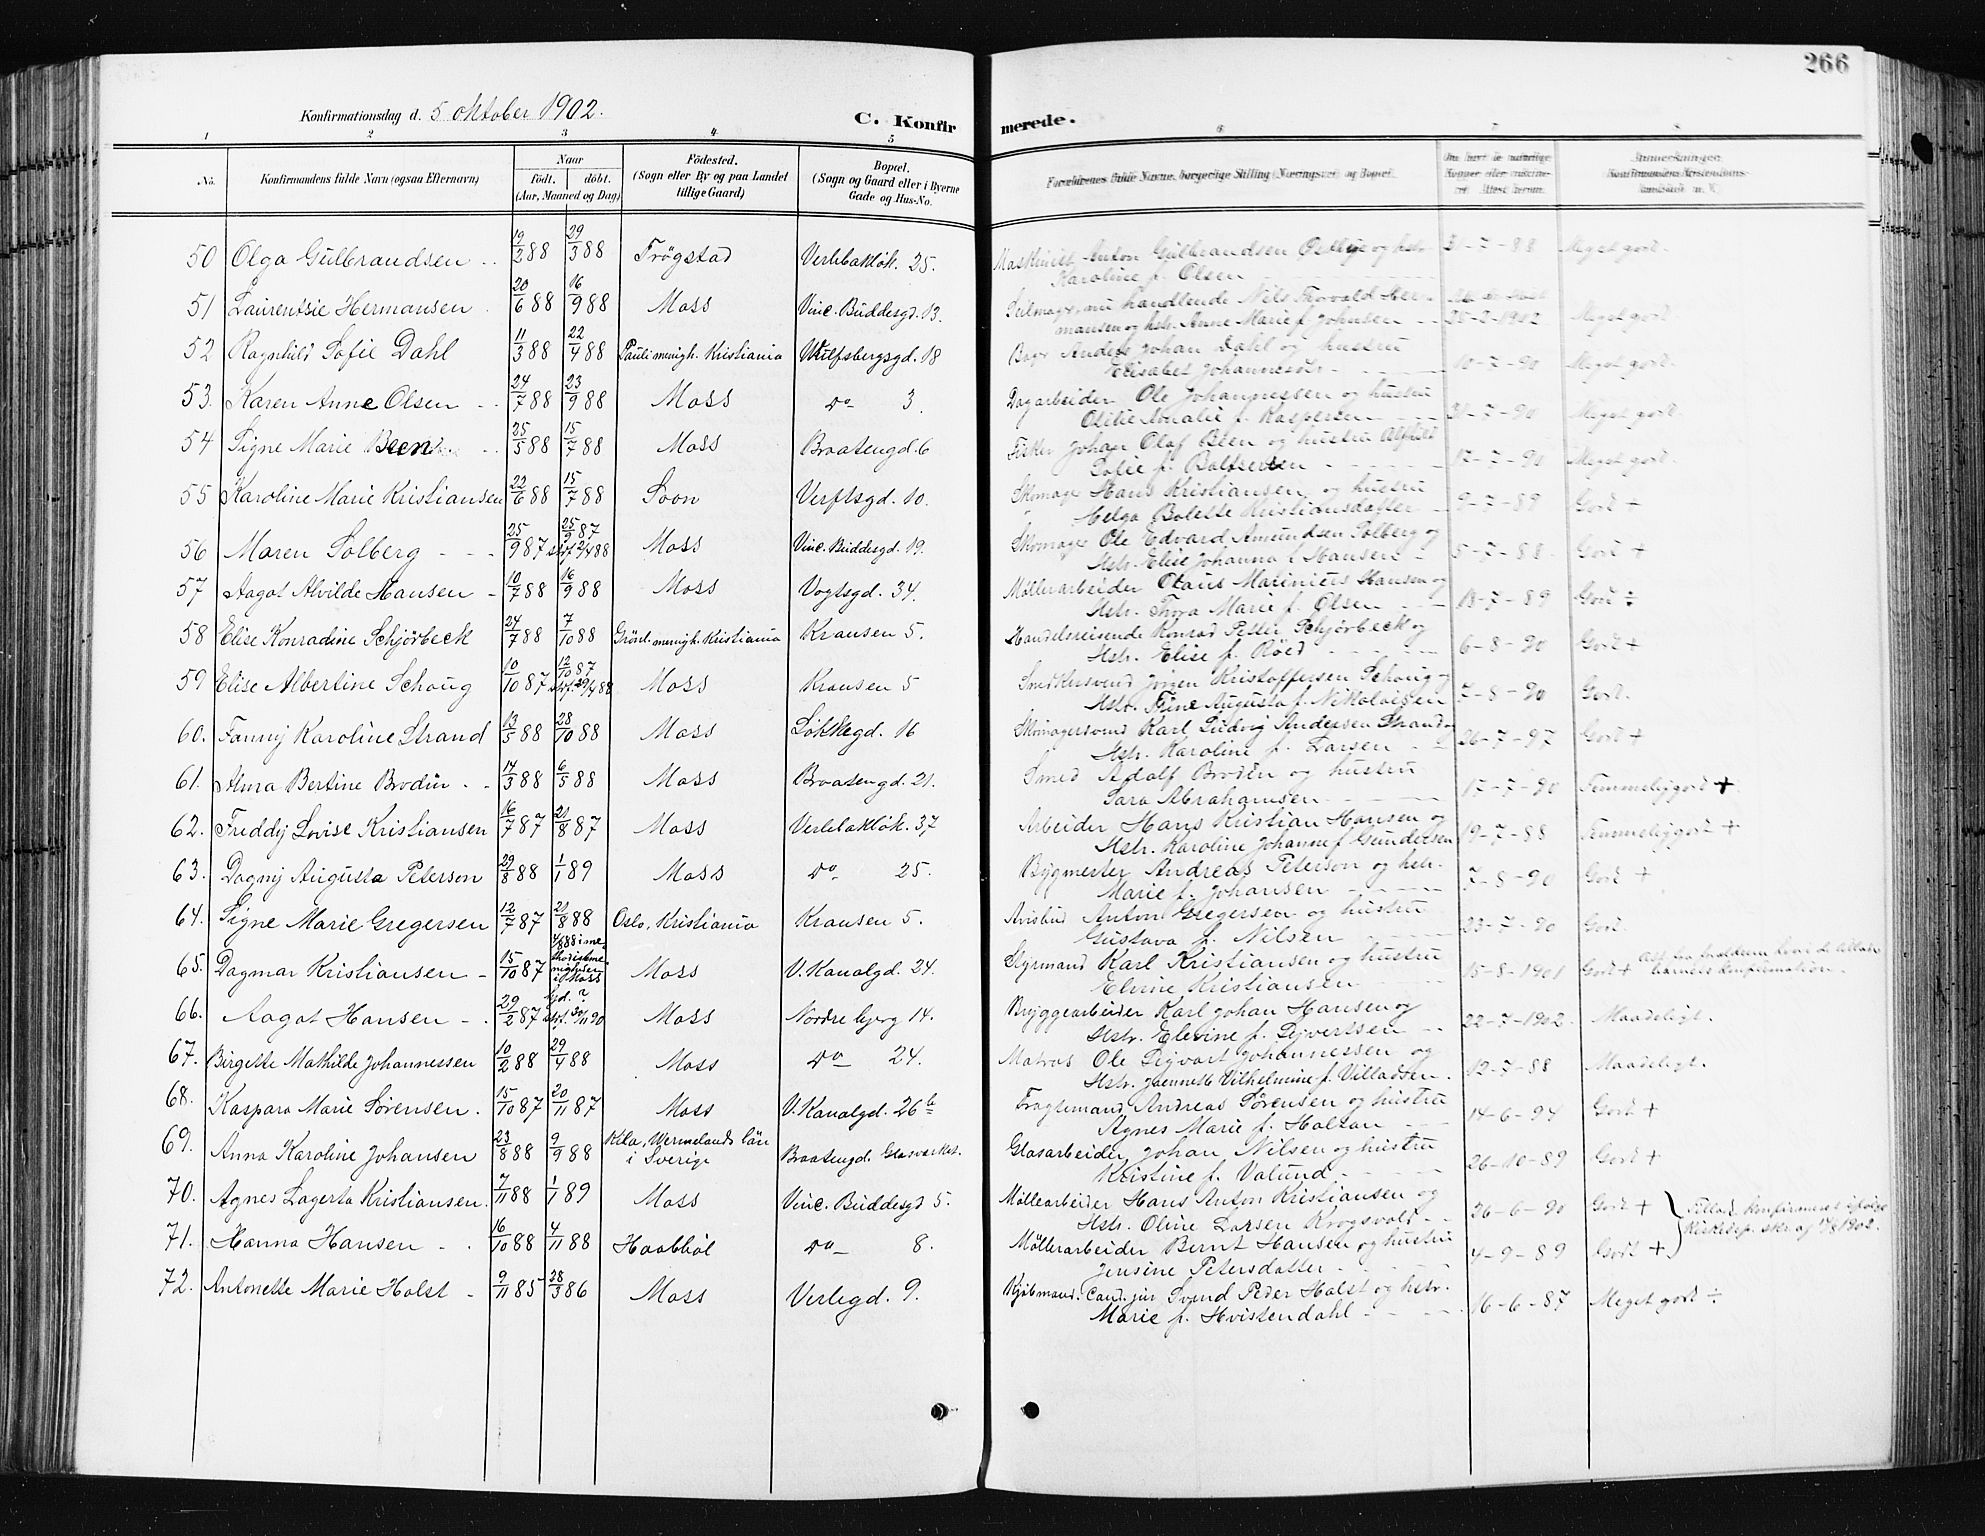 266
Konfirmationsdag d. 5 oktober 1902.
C. Konfirmerede.
1 2 3 4 5 6 7
No. Konfirmandens fulde Navn (ogsaa Efternavn) Naar födt. döbt. (Aar, Maaned og Dag) Födested. (Sogn eller By og paa Landet tillige Gaard) Bopæl. (Sogn og Gaard eller i Byerne Gade og Hus-No. Forældrenes fulde Navne, borgerlige Stilling (Næringsvei) og Bopæl.
50 Olga Gulbrandsen 19/2 88 29/3 88 Trögstad Verlebakløk. 25. Maskinist Anton Gulbrandsen og hstr. Karoline f. Olsen 31-7-88 Meget godt.
51 Laurentzie Hermansen 20/6 88 16/9 88 Moss Vinc. Buddesgd. 13. nu handlende Nils Thorvald Hermansen og hstr. Anne Marie f. Johnsen 25-2-1902 Meget godt.
52 Ragnhild Sofie Dahl 11/3 88 22/4 88 Pauli menigh. Kristiania Wulfsbergsgd. 18 Anders Johan Dahl og hustru Elisabet Johannesdr. 10-7-90 Meget godt.
53. Karen Anne Olsen 24/7 88 23/9 88 Moss Do 3. Dagarbeider Ole Johannessen og hustru f. Kaspersen 31-7-90 Meget godt.
54 Signe Marie Been 25/5 88 15/7 88 Moss Braatengd. 6 Fisker Johan Olaf Been og hustru Alfhild Sofie f. Baltsersen 17-7-90 Meget godt.
55 Karoline Marie Kristiansen 22/6 88 15/7 88 Soon Verftsgd. 10. Skomager Hans Kristiansen og hustru Helga Bolette Kristiansdatter 9-7-89 Godt +
56 Maren Solberg 25/9 87 25/9 87 st.f. 2/4 88 Moss Vinc. Buddesgd. 19. Skomager Ole Edvard Amundsen Solberg og Hstr. Elise Johanna f. Hansen 5-7-88. Godt +
57 Aagot Alvilde Hansen 10/7 88 16/9 88 Moss Vogtsgd. 34. Møllerarbeider Olaus Marinius Hansen og Hstr. Thea Marie f. Olsen 18-7-89 Godt ÷
58 Elise Konradine Schjørbeck 24/7 88 7/10 88 Grönl. menigh. Kristiania Kransen 5. Handelsreisende Konrad Petter Schjørbeck og Hstr. Elise f. Röed 6-8-90 Godt +
59 Elise Albertine Schoug 10/10 87 12/10 87 st.f. 29/4 88 Moss Kransen 5 Smedkersvend Jörgen Kristoffersen Schoug og Hstr. Fine Augusta f. Nikolaisen 7-8-90 Godt.
60. Fanny Karoline Strand 13/5 88 28/10 88 Moss Løkkegd. 16 Skomagersvend Karl Ludvig Andersen Strand og Hstr. Karoline f. Larsen 26-7-97 Godt +
61. Alma Bertine Brodin 14/3 88 6/5 88 Moss Braatengd. 21. Smed Adolf Brodin og hustru Sara Abrahamsen 17-7-90 Temmelig godt +
62. Freddy Lovise Kristiansen 16/7 87 21/8 87 Moss Verlebakløk. 37 Arbeider Hans Kristian Hansen og Hstr. Karoline Johanne f. Gundersen 19-7-88 Temmelig godt +
63. Dagny Augusta Peterson 29/8 88 1/1 89 Moss Do 25. Bygmester Andreas Peterson og hstr. Marie f. Johansen 7-8-90 Godt +
64. Signe Marie Gregersen 12/7 87 21/8 88 Oslo, Kristiania Kransen 5. Avisbud Anton Gregersen og hustru Gustava f. Nilsen 23-7-90 Godt.
65. Dagmar Kristiansen 15/10 87 4/8 88 i methodistmenigheden i Moss Moss V. Kanalgd. 24. Styrmand Karl Kristiansen og hustru Elvine Kristiansen 15-8-1901 Godt + barnets konfirmation.
66. Aagot Hansen 29/2 87 hjd. ? st.f. 30/11 90 Moss Nordre bjerg 14. Bryggearbeider Karl Johan Hansen og Hstr. Elevine f. Syvertsen 22-7-1902. Maadeligt.
67. Birgette Mathilde Johannessen 10/2 88 29/4 88 Moss Do 24. Matros Ole Sigvart Johannessen og Hstr. Jaennette Vilhelmine f. Villadsen. 12-7-88 Maadeligt.
68. Kaspara Marie Sørensen. 15/10 87 20/11 87 Moss V. Kanalgd. 26 b Fragtemand Andreas Sørensen og hustru Agnes Marie f. Holtan 14-6-94 Godt +
69. Anna Karoline Johansen 23/8 88 9/9 88 Kila, Wermelands län i Sverige Braatengd. Glasværket. Glasarbeider Johan Nilsen og hustru Kristine f. Valund 26-10-89 Godt +
70. Agnes Lagerta Kristiansen. 7/11 88 1/1 89 Moss Vinc. Buddesgd 5. Møllearbeider Hans Anton Kristiansen og Hstr. Oline Larsen Krogsvold 26-6-90 Godt +
71. Hanna Hansen 16/10 88 4/11 88 Haabböl Do 8. Møllerarbeider Bernt Hansen og hustru Jensine Petersdatter 4-9-89 Godt +
Tillad. konfirmeret ifølge Kirkedep. skr. af 1902.
72. Antonette Marie Holst 9/11 85 28/3 86 Moss Verlegd. 9. Kjöbmand. Cand. jur Svend Peder Holst og hstr. Marie f. Hvistendahl 16-6-87 Meget godt ÷